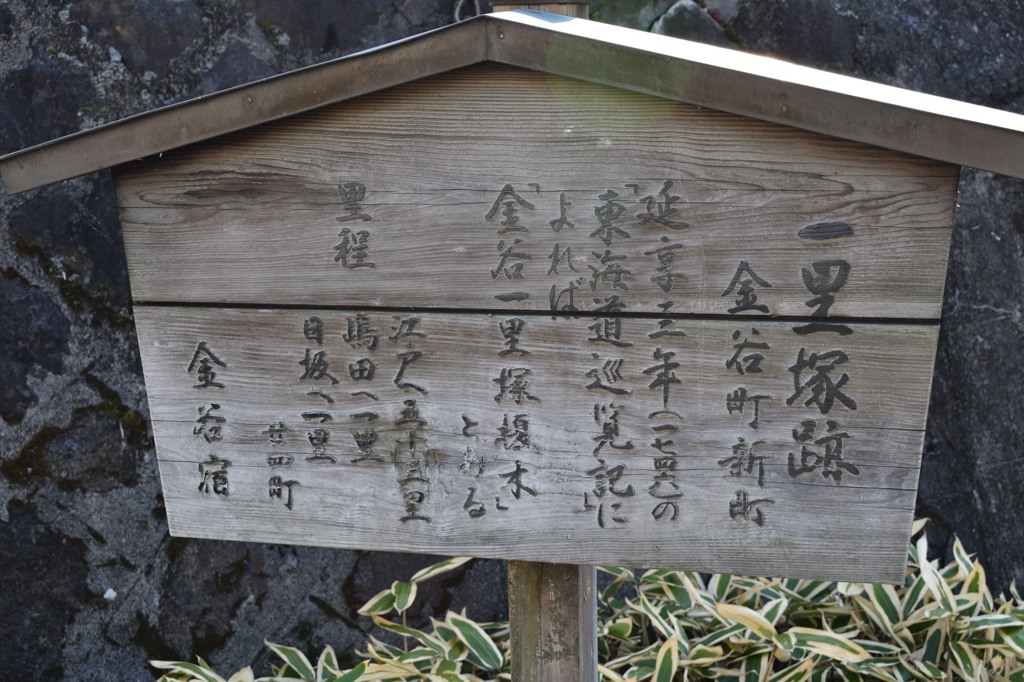 一里塚跡
金谷町新町
延享三年(一七四六)の
「東海道巡覧記」に
よれば
「金谷一里塚榎木」
とある
里程
江戸へ五十三里
島田へ一里
日坂へ一里
廿四町
金谷宿